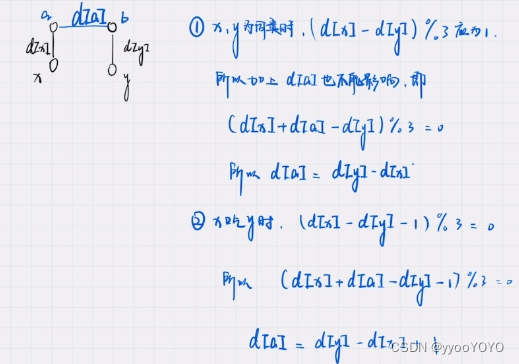 a d[a] b
d[x] d[y]
x y
① x,y为同类时,(d[x]-d[y])%3应为1.
所以加上d[a]也不能影响,即
(d[x]+d[a]-d[y])%3=0
所以 d[a]=d[y]-d[x]
② x吃y时.(d[x]-d[y]-1)%3=0
所以 (d[x]+d[a]-d[y]-1)%3=0
d[a]=d[y]-d[x]+1
CSDN @yyooYOYO